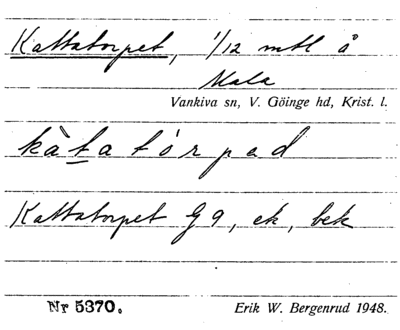 Kattatorpet, 1/12 mtl å
Mala
Vankiva sn, V. Göinge hd, Krist. l.
kàtatórpad
Kattatorpet G 9, ek, bek
Nr 5370.
Erik W. Bergenrud 1948.